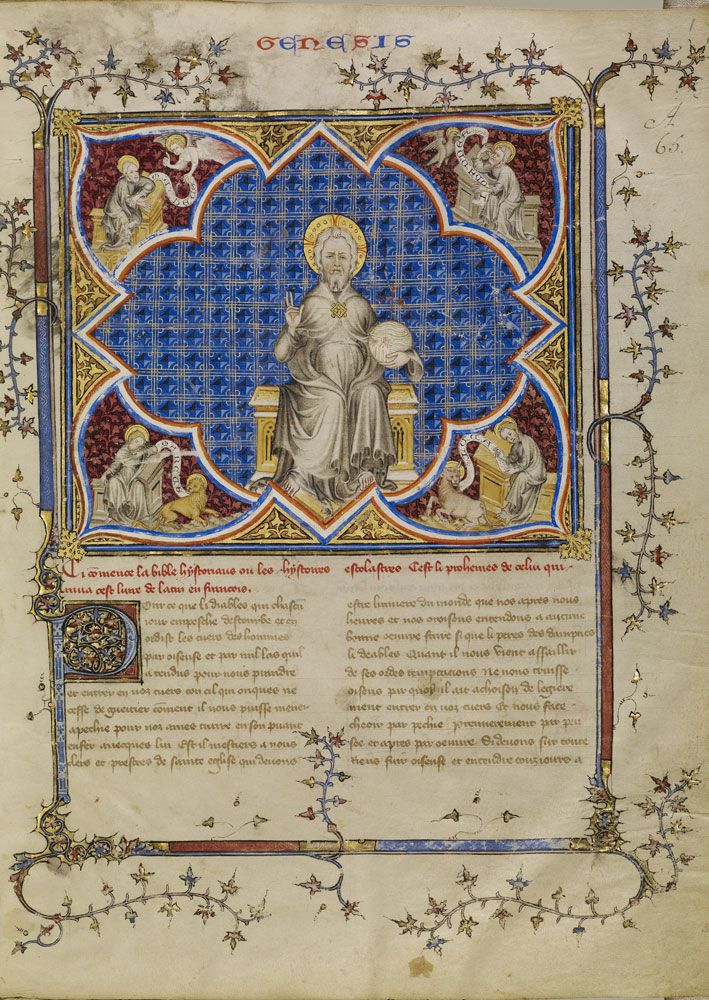 GENESIS
A
65.
Ci comence la bible hystoriaus ou les hystoires escolastres Cest li prohemes de celui qui
mist cest livre de latin en francois.
Pour ce que li diables qui chascun
iour empesche destourbe et en
ordist les cuers des hommes
par oiseuse et par mil las quil
a tendus pour nous prendre
et entrer en noz cuers cil qui onques ne
cesse de guetier coment il nous puisse mener
a pechie pour noz ames traire en son puant
enfer avecques lui Est il mestiers a nous
clers et prestres de sainte eglise qui devons
estre lumiere du monde que nos apres nous
heures et nos oroisons entendons a aucune
bonne oeuvre faire si que li peres des dampnes
li deables Quant il nous vient assaillir
de ses ordes temptacions Ne nous truisse
oiseus par quoy il ait achoison de legiere
ment entrer en noz cuers Et nous face
cheoir par pechie premierement par pen
see et apres par oeuvre Si devons sur toute
riens fuir oiseuse et entendre touz iours a